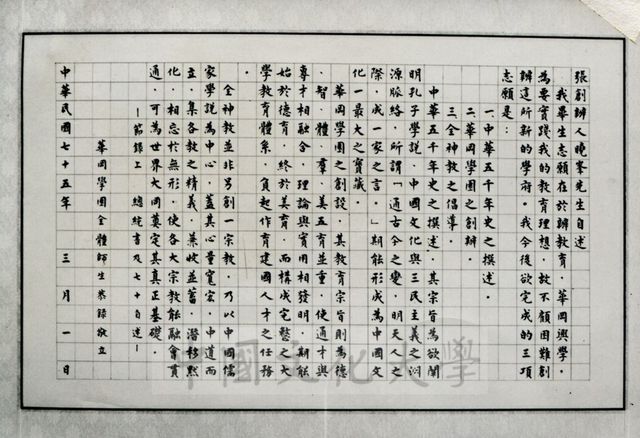 張創辦人曉峯先生自述
我畢生志願在於辦教育．華岡興學．
為要實踐我的教育理想．故不顧困難創
辦這所新的學府．我今後欲完成的三項
志願是：
一中華五千年史之撰述．
二華岡學園之創辦．
三全神教之倡導．
中華五千年史之撰述．其宗旨為欲闡
明孔子學說．中國文化與三民主義之淵
源脈絡．所謂「通古今之變．明天人之
際．成一家之言．」期能形成為中國文
化一最大之寶藏．
華岡學園之創設．其教育宗旨則為德
．智．體．羣．美五育並重．使通才與
專才相融合．理論與實用相發明．期能
始於德育．終於美育．而構成完整之大
學教育體系．負起作育建國人才之任務
全神教並非另創一宗教．乃以中國儒
家學說為中心．蓋其心量寬宏．中道而
立．集各教之精義．兼收並蓄．潛移默
化．相忘於無形．使各大宗教能融會貫
通．可為世界大同奠定其真正基礎．
—節錄上 總統書及七十自述—
華岡學園全體師生恭錄敬立
中華民國七十五年 三月一日
中國文化大學